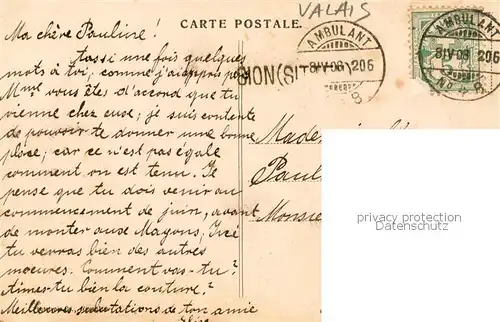 VALAIS
CARTE POSTALE.
Ma chère Pauline!
Aussi une fois quelques
mots à toi, comme j'ai appris
Mme vous êtes d'accord que tu
vienne chez eux; je suis contente
de pouvoir te donner une bonne
place; car ce n'est pas égale
comment on est tenu. Je
pense que tu dois venir au
commencement de juin, avant
de monter aux Mayens, Ici
tu verras bien des autres
moeures. Comment vas-tu?
Aimes-tu bien la couture?
Meilleures salutations de ton amie
AMBULANT
8 IV 08 206
No 8
SION (SI
AMBULANT
8 IV 08 206
No 8
Made
Paul
Monsie
property protection
AnkAnt